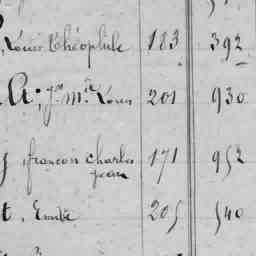 , Louis Théophile 183 392
A, Jn Mie Louis 201 930
y, françois charles 171 952
jean
t, Emile 205 540